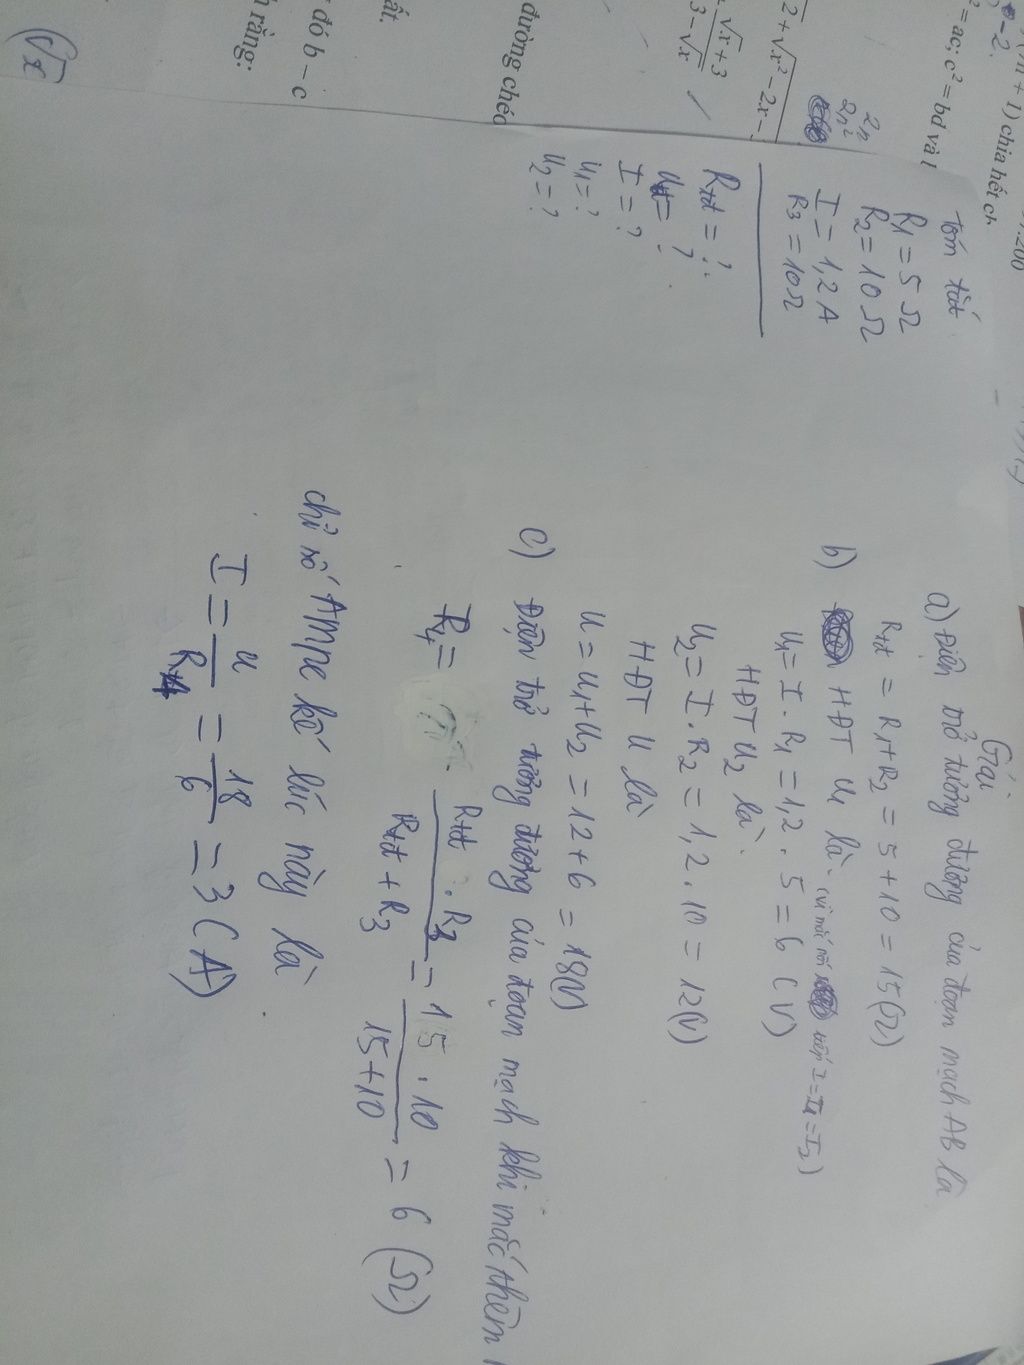 (m + 1) chia hết ch
-2.
² = ac; c² = bd và l
2n
2n²
2 + √x² - 2x -
√x + 3
3 - √x
đường chéo
ất.
đó b - c
h rằng:
(√x
Tóm tắt
R1 = 5 Ω
R2 = 10 Ω
I = 1,2 A
R3 = 10Ω
Rtđ = ?
U = ?
I = ?
U1 = ?
U2 = ?
Giải
a) Điện trở tương đương của đoạn mạch AB là
Rtđ = R1 + R2 = 5 + 10 = 15(Ω)
b) HĐT U1 là (vì mắc nối tiếp I = I1 = I2)
U1 = I . R1 = 1,2 . 5 = 6 (V)
HĐT U2 là.
U2 = I . R2 = 1,2 . 10 = 12(V)
HĐT U là
U = U1 + U2 = 12 + 6 = 18(V)
c) Điện trở tương đương của đoạn mạch khi mắc thêm
Rtđ . R3
= 15 . 10
= 6 (Ω)
Rtđ + R3
15 + 10
chỉ số Ampe kế lúc này là
I = U = 18 = 3 (A)
6